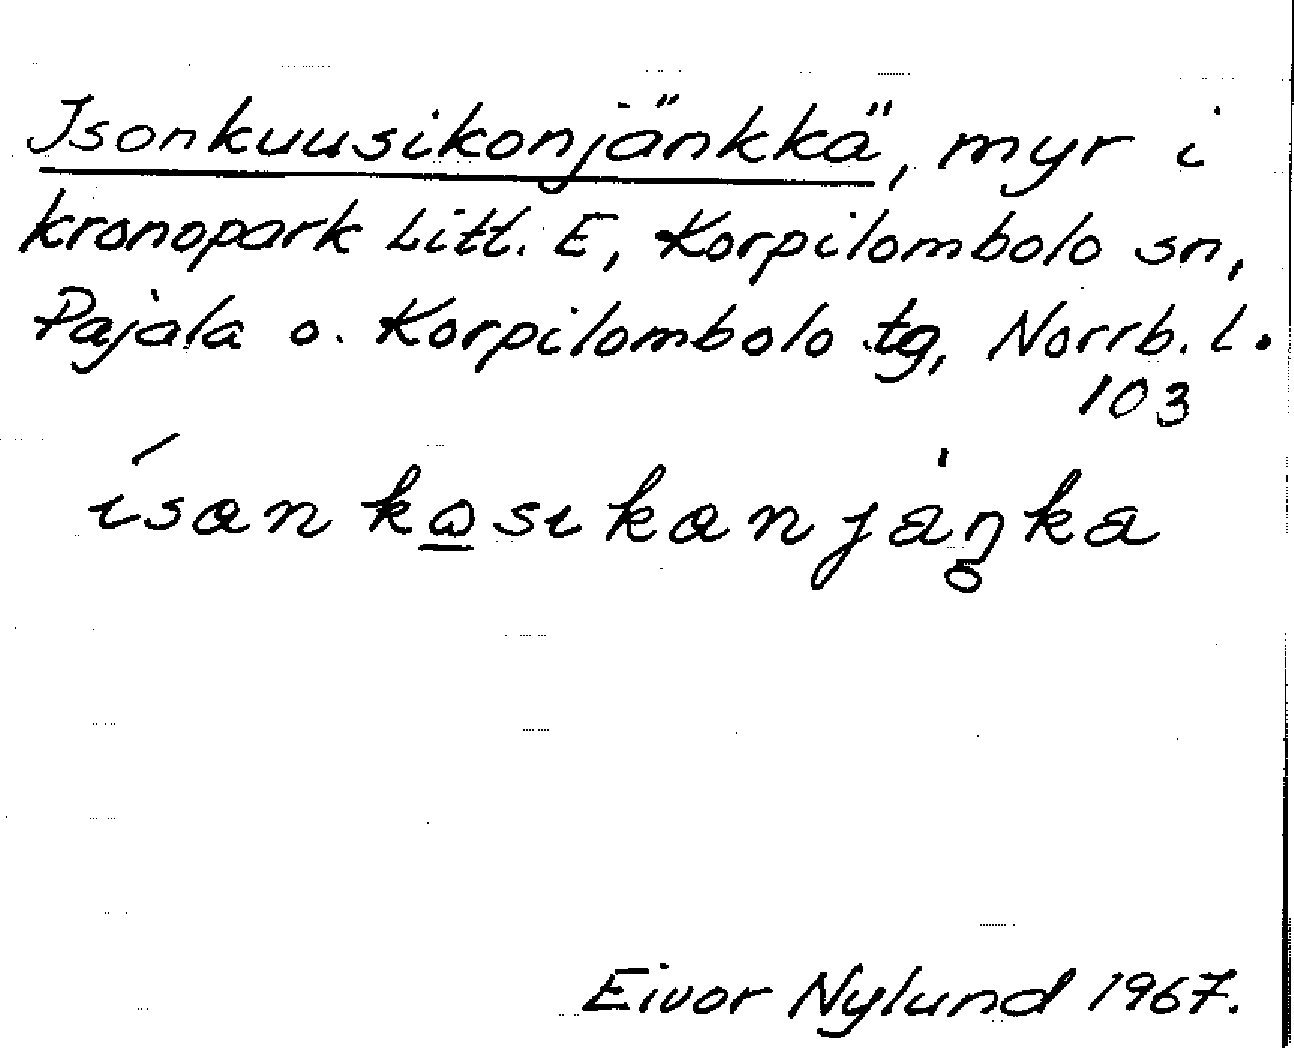 Isonkuusikonjänkkä, myr i
kronopark Litt. E, Korpilombolo sn,
Pajala o. Korpilombolo tg, Norrb. l.
103
Eivor Nylund 1967.